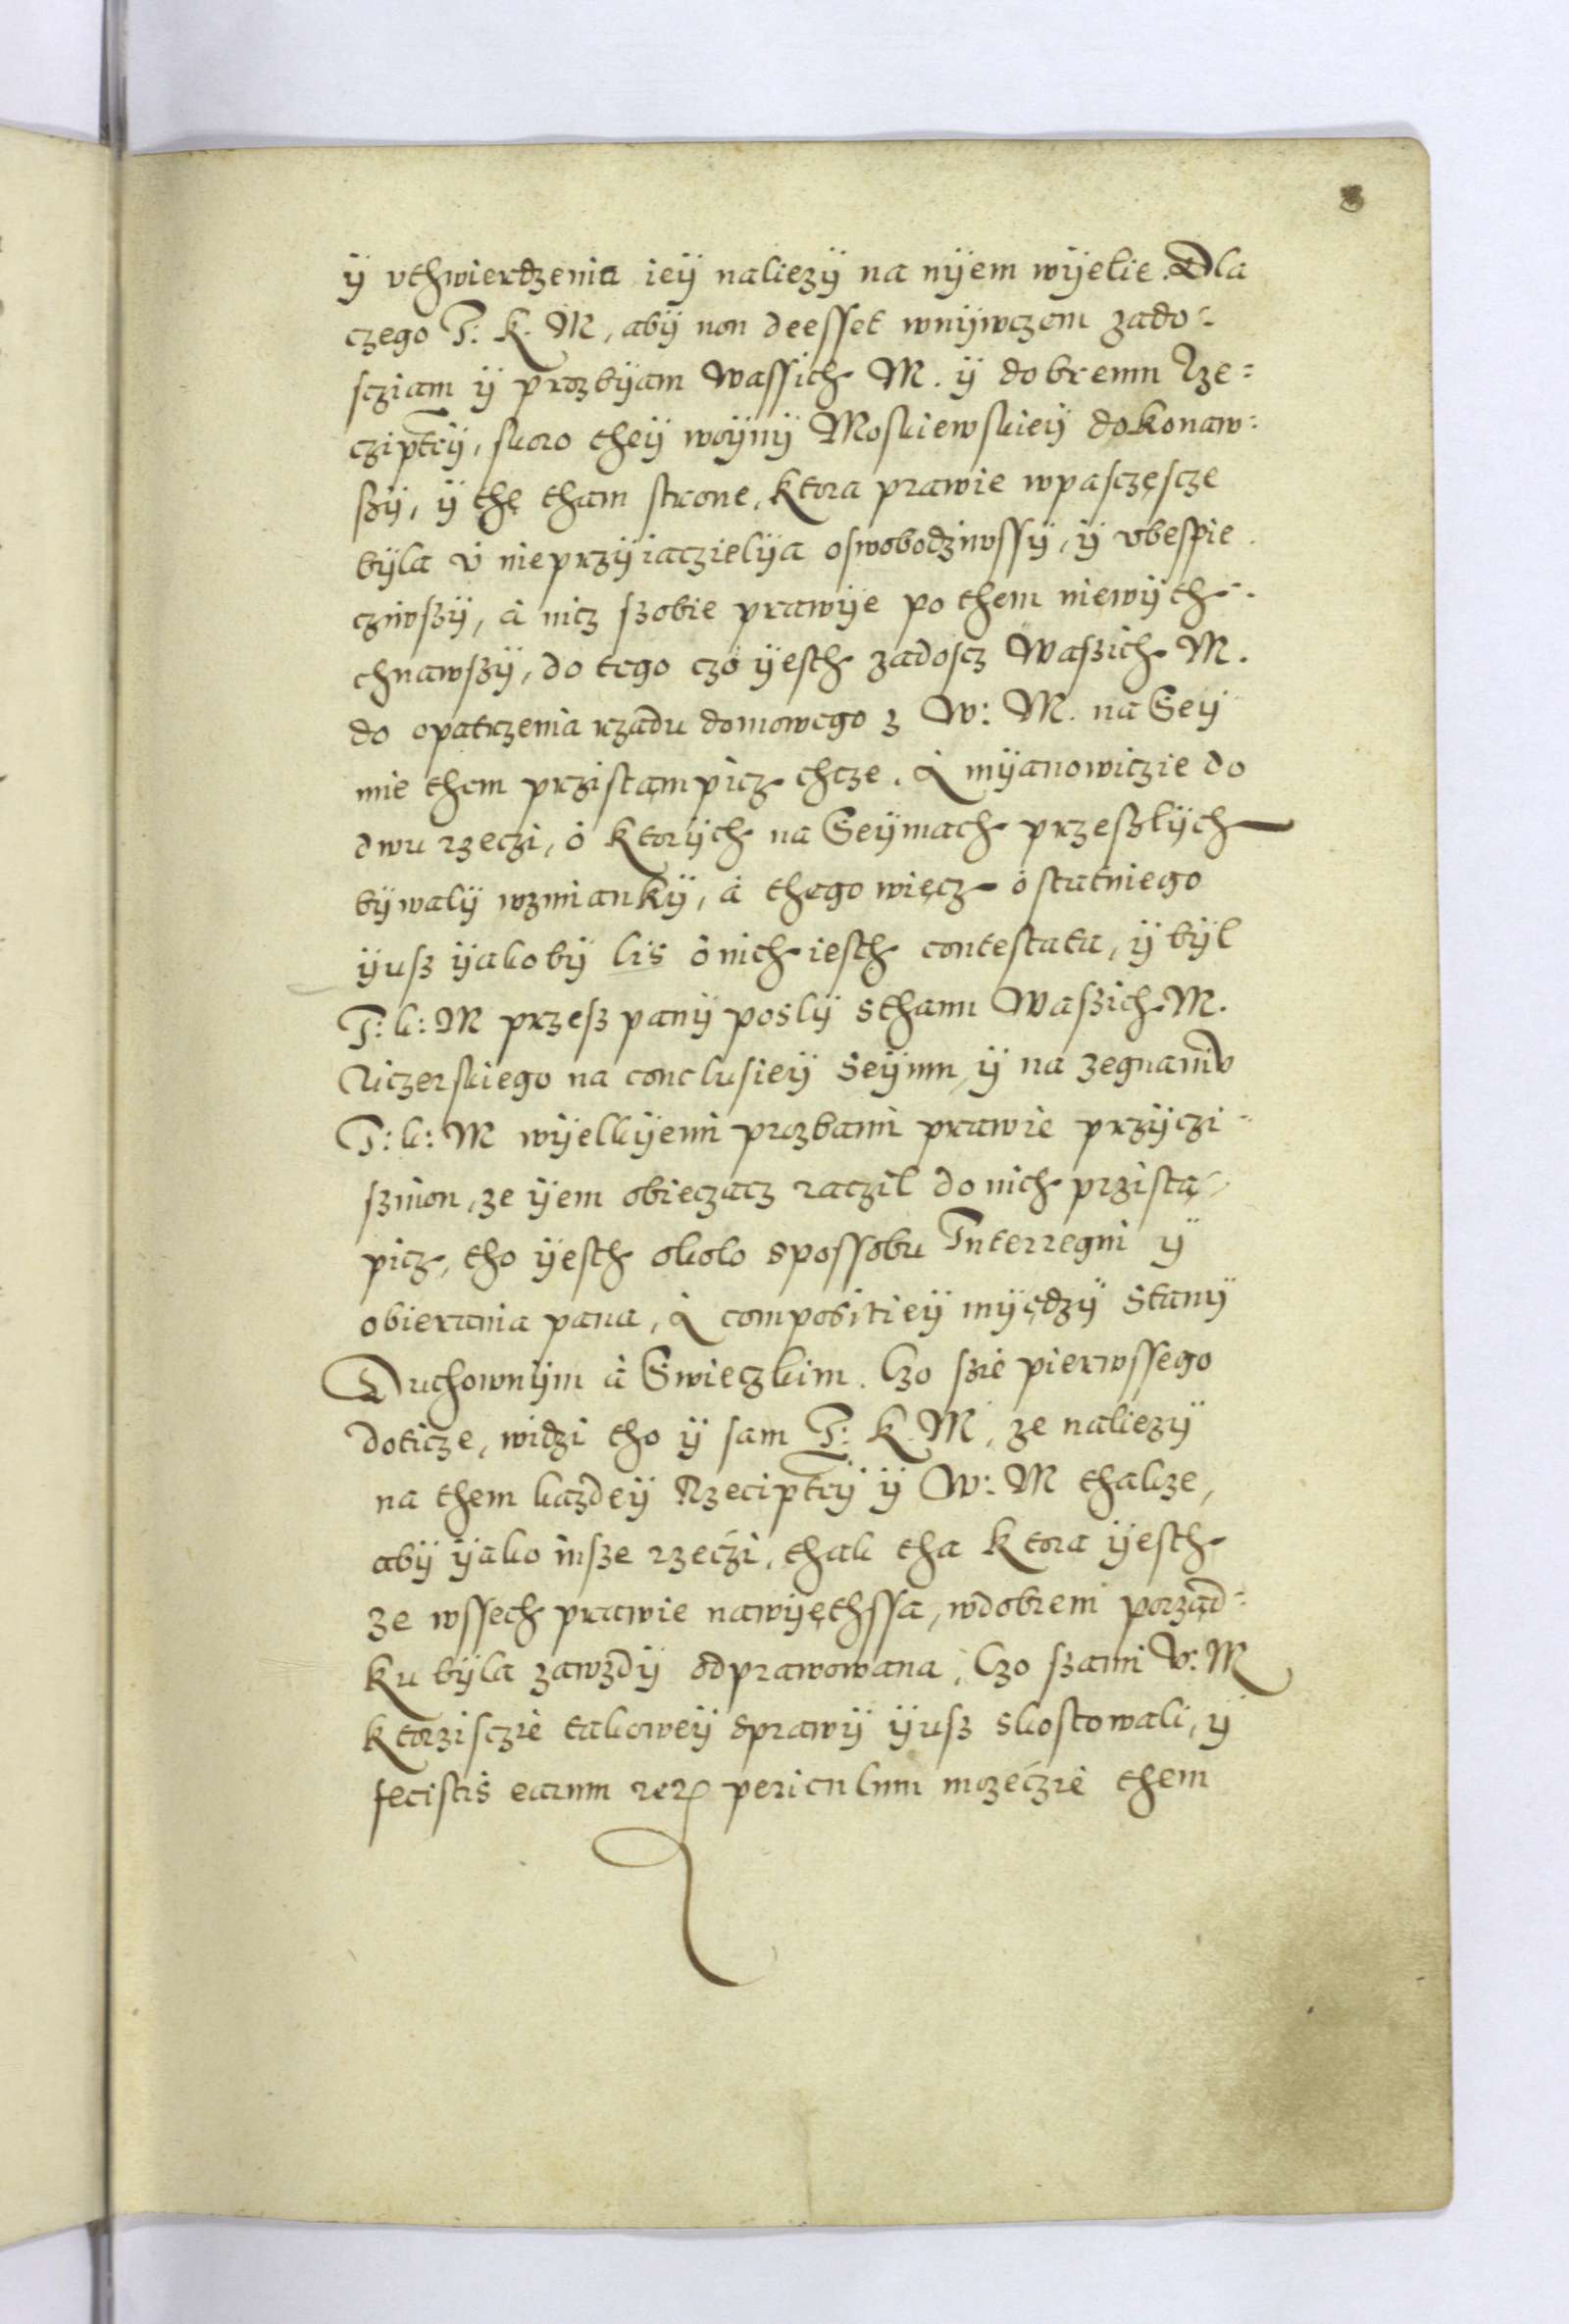 3
ÿ vthwierdzenia ieÿ naliezÿ na nÿem wÿelie. Dla
czego J: K. M, abÿ non deesset wnÿwczem zado-
scziam ÿ prozbÿam Wassich M. ÿ dobremu Rze=
cziptrÿ, skoro theÿ woÿnÿ Moskiewskieÿ dokonaw=
szÿ, ÿ thę tham strone, ktora prawie wpasczęscze
bÿla ú nieprzÿiaczielÿa oswobodziwssÿ, ÿ vbespie
cziwszÿ, á nicz szobie prawÿe po them niewÿth-
chnawszÿ, do tego czo ÿesth zadoscz Waszich M.
do opatrzenia rządu domowego z W: M. na Seÿ
mie them przistąmpicz chcze. A mÿanowiczie do
dwu rzeczi, ó ktorÿch na Seÿmach przeszlÿch
bÿwalÿ wzmiankÿ, á thego więcz ostatniego
ÿusz ÿakobÿ lis ó nich iesth contestata, ÿ bÿl
J: k: M przesz panÿ poslÿ sthanu Waszich M.
Riczerskiego na conclusieÿ seÿmu, ÿ na zegnaniv
J: k: M wÿelkÿemi prozbami prawie przÿczi-
sznion, ze ÿem obieczacz raczil do nich przistą-
picz, tho ÿesth okolo spossobu Interregni ÿ
obierania pana, A compositieÿ mÿędzÿ stanÿ
Duchownÿm á Swieczkim. Czo szie pierwssego
doticze, widzi tho ÿ sam J: K. M, ze naliezÿ
na them kazdeÿ Rzeciptrÿ ÿ W: M thakze,
abÿ ÿako insze rzeczi, thak tha ktora ÿesth
ze wssech prawie nawÿęthssa, wdobrem porząd-
ku bÿla zawzdÿ odprawowana, Czo szami W: M
ktorzisczie takoweÿ sprawÿ ÿusz skostowali, ÿ
fecistis earum rerum periculum mozeczie them